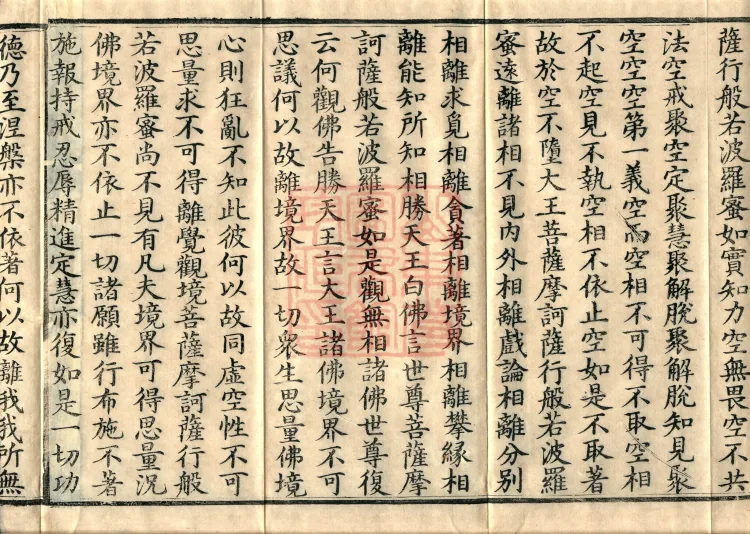 薩行般若波羅蜜如實知力空無畏空不共
法空戒聚空定聚慧聚解脫聚解脫知見聚
空空空第一義空而空相不可得不取空相
不起空見不執空相不依止空如是不取著
故於空不墮大王菩薩摩訶薩行般若波羅
蜜遠離諸相不見內外相離戲論相離分別
相離求覓相離貪著相離境界相離攀緣相
離能知所知相勝天王白佛言世尊菩薩摩
訶薩般若波羅蜜如是觀無相諸佛世尊復
云何觀佛告勝天王言大王諸佛境界不可
思議何以故離境界故一切衆生思量佛境
心則狂亂不知此彼何以故同虛空性不可
思量求不可得離覺觀境菩薩摩訶薩行般
若波羅蜜尚不見有凡夫境界可得思量況
佛境界亦不依止一切諸願雖行布施不著
施報持戒忍辱精進定慧亦復如是一切功
德乃至涅槃亦不依著何以故離我我所無